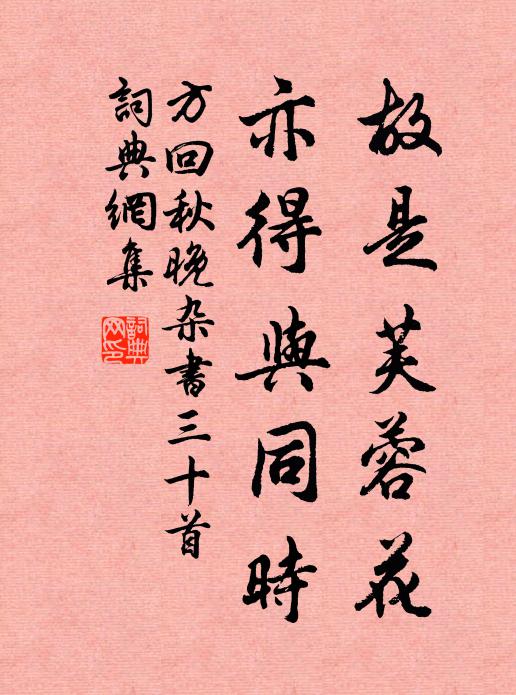 故是芙蓉花
亦得與同時
方回秋晚杂書三十首
詞典網集
詞典網印